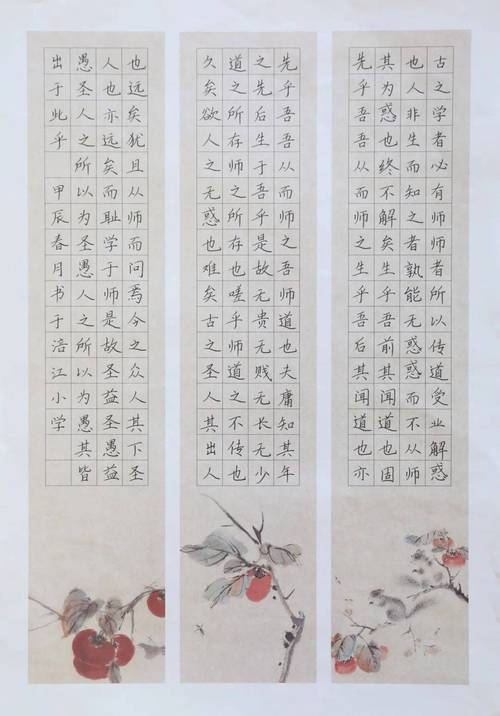 古之学者必有师师者所以传道受业解惑
也人非生而知之者孰能无惑惑而不从师
其为惑也终不解矣生乎吾前其闻道也固
先乎吾吾从而师之生乎吾后其闻道也亦
先乎吾吾从而师之吾师道也夫庸知其年
之先后生于吾乎是故无贵无贱无长无少
道之所存师之所存也嗟乎师道之不传也
久矣欲人之无惑也难矣古之圣人其出人
也远矣犹且从师而问焉今之众人其下圣
人也亦远矣而耻学于师是故圣益圣愚益
愚圣人之所以为圣愚人之所以为愚其皆
出于此乎 甲辰春月书于涪江小学